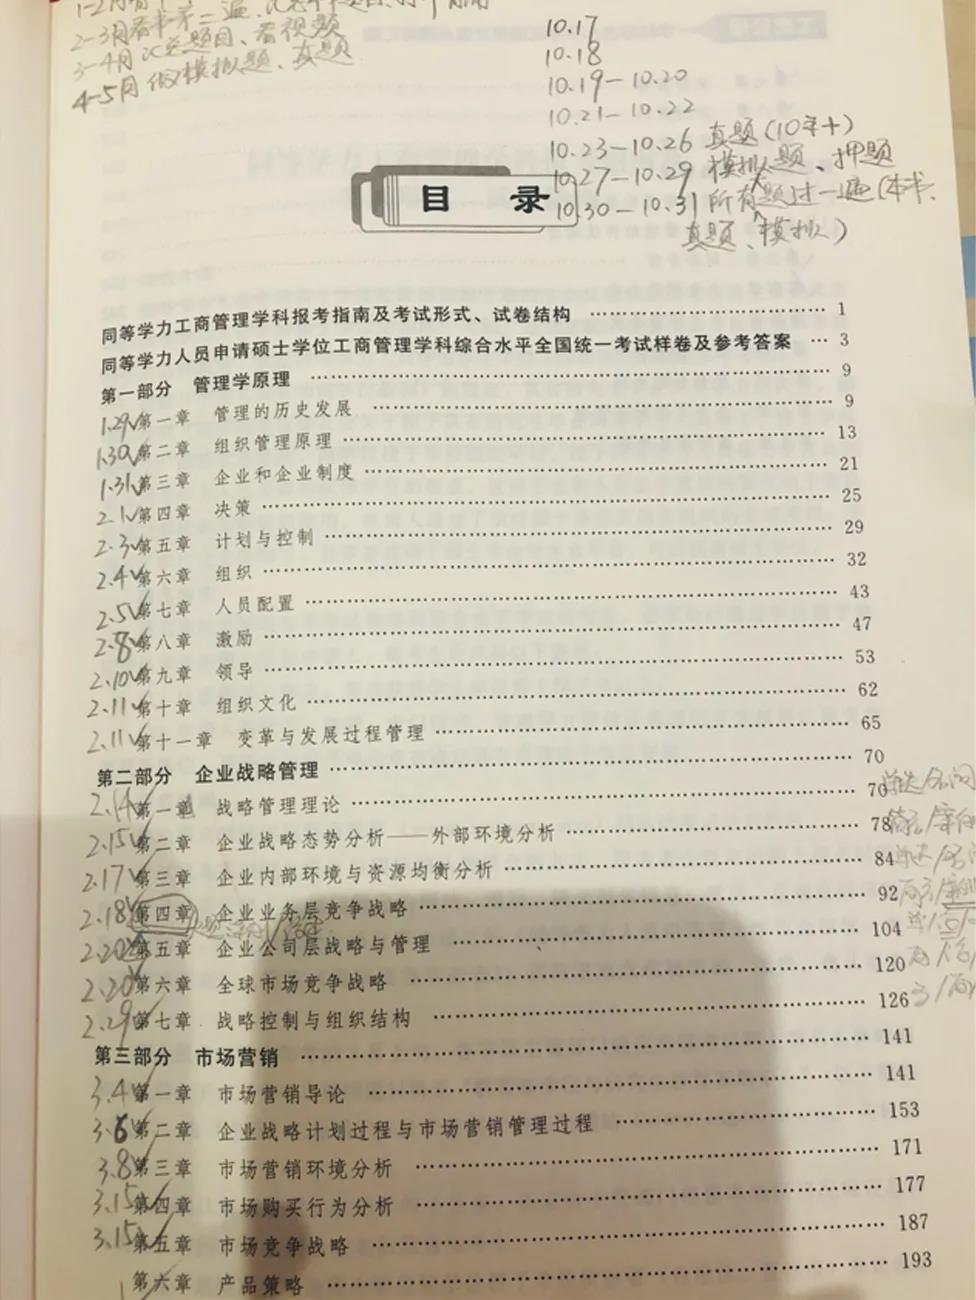 2-3月看书第二遍、汇总题目、
3-4月汇总题目、看视频
4-5月做模拟题、真题
10.17
10.18
10.19-10.20
10.21-10.22
10.23-10.26 真题(10年+)
10.27-10.29 模拟题、押题
10.30-10.31 所有题过一遍(本书、
真题、模拟)
目 录
同等学力工商管理学科报考指南及考试形式、试卷结构 …… 1
同等学力人员申请硕士学位工商管理学科综合水平全国统一考试样卷及参考答案 … 3
第一部分 管理学原理 …… 9
1.29✓第一章 管理的历史发展 …… 9
1.30✓第二章 组织管理原理 …… 13
1.31✓第三章 企业和企业制度 …… 21
2.1✓第四章 决策 …… 25
2.3✓第五章 计划与控制 …… 29
2.4✓第六章 组织 …… 32
2.5✓第七章 人员配置 …… 43
2.8✓第八章 激励 …… 47
2.10✓第九章 领导 …… 53
2.11✓第十章 组织文化 …… 62
2.11✓第十一章 变革与发展过程管理 …… 65
第二部分 企业战略管理 …… 70
2.14✓第一章 战略管理理论 …… 70
2.15✓第二章 企业战略态势分析——外部环境分析 …… 78
2.17✓第三章 企业内部环境与资源均衡分析 …… 84
2.18✓第四章 企业业务层竞争战略 …… 92
2.20✓第五章 企业公司层战略与管理 …… 104
2.20✓第六章 全球市场竞争战略 …… 120
2.29✓第七章 战略控制与组织结构 …… 126
第三部分 市场营销 …… 141
3.4✓第一章 市场营销导论 …… 141
3.6✓第二章 企业战略计划过程与市场营销管理过程 …… 153
3.8✓第三章 市场营销环境分析 …… 171
3.15✓第四章 市场购买行为分析 …… 177
3.15✓第五章 市场竞争战略 …… 187
第六章 产品策略 …… 193